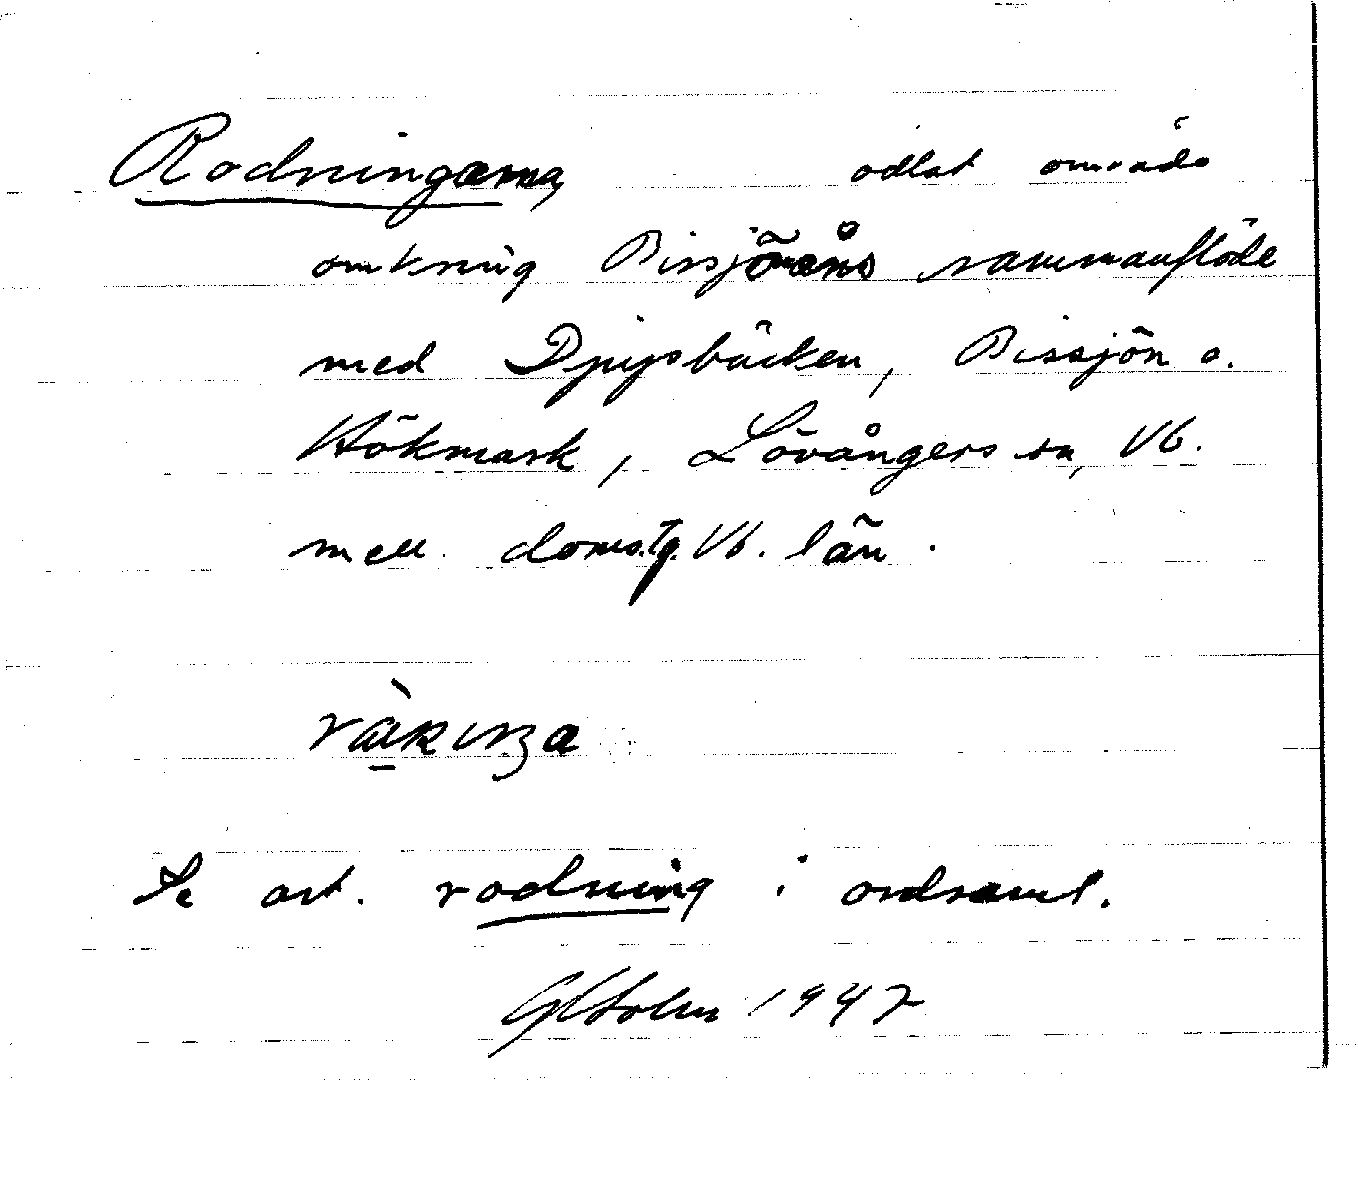 Rodningarna, odlat område
omkring Bissjöåns sammanflöde
med Djupbäcken, Bissjön o.
Hökmark, Lövångers sn, Vb.
mell. doms.tg. Vb. län.
Se art. rodning i ordsaml.
GHolm 1947